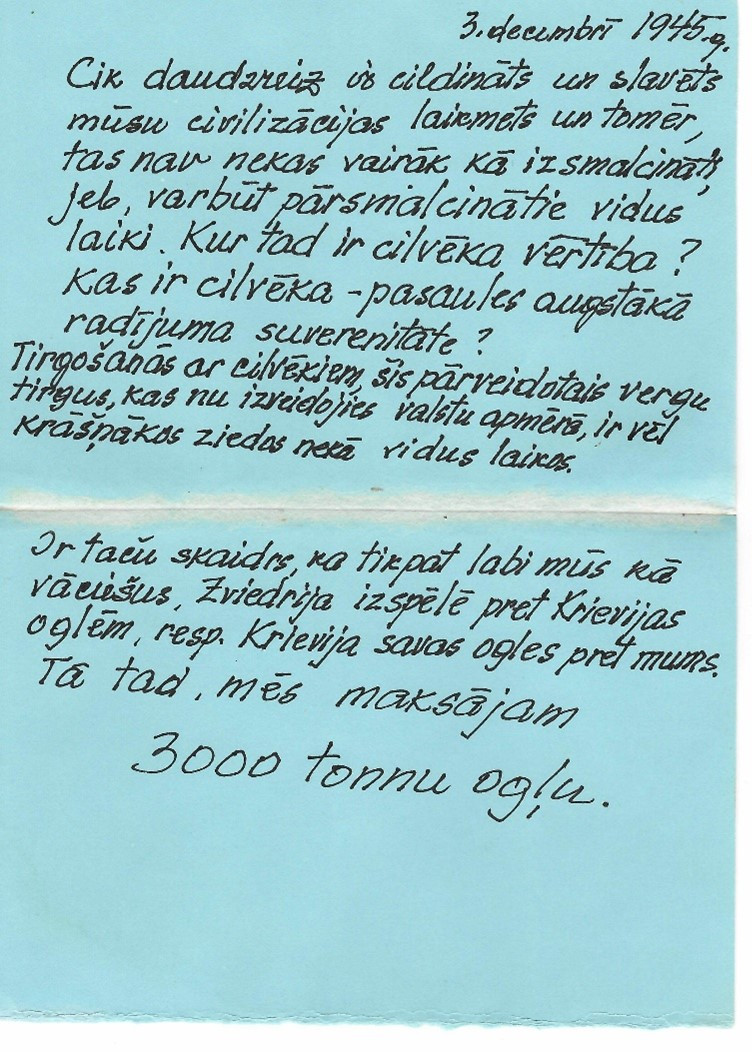 3. decembrī 1945.g.
Cik daudzreiz ir cildināts un slavēts
mūsu civilizācijas laikmets un tomēr,
tas nav nekas vairāk kā izsmalcināti,
jeb, varbūt pārsmalcinātie vidus
laiki. Kur tad ir cilvēka vērtība?
Kas ir cilvēka - pasaules augstākā
radījuma suverenitāte?
Tirgošanās ar cilvēkiem, šis pārveidotais vergu
tirgus, kas nu izveidojies valstu apmērā, ir vēl
krāšņākos ziedos nekā vidus laikos.
Ir taču skaidrs, ka tikpat labi mūs kā
vāciešus, Zviedrija izspēlē pret Krievijas
oglēm, resp. Krievija savas ogles pret mums.
Tā tad, mēs maksājam
3000 tonnu ogļu.